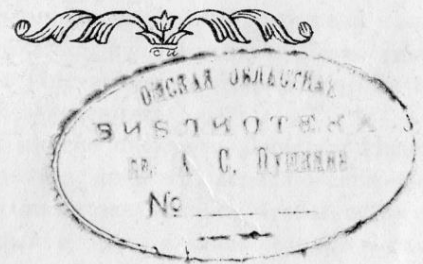 ОМСКАЯ ОБЛАСТНАЯ
БИБЛИОТЕКА
им. А. С. Пушкина
№